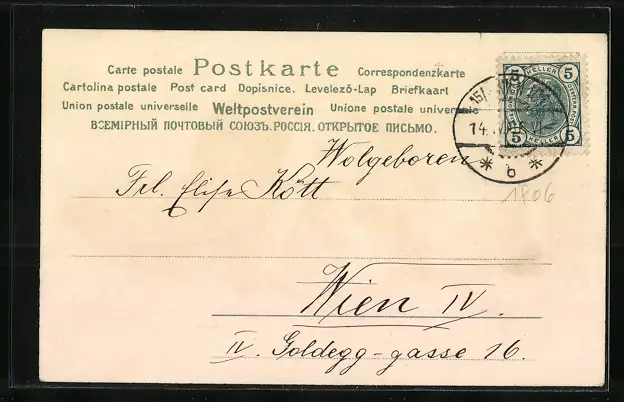 Carte postale Postkarte Correspondenzkarte
Cartolina postale Post card Dopisnice. Levelező-Lap Briefkaart
Union postale universelle Weltpostverein Unione postale univer
ВСЕМІРНЫЙ ПОЧТОВЫЙ СОЮЗЪ. РОССІЯ. ОТКРЫТОЕ ПИСЬМО.
5 HELLER 5
5 HELLER 5
14
* b *
1906
Wolgeboren
Frl. Elise Kött
Wien IV.
IV. Goldegg-gasse 16.